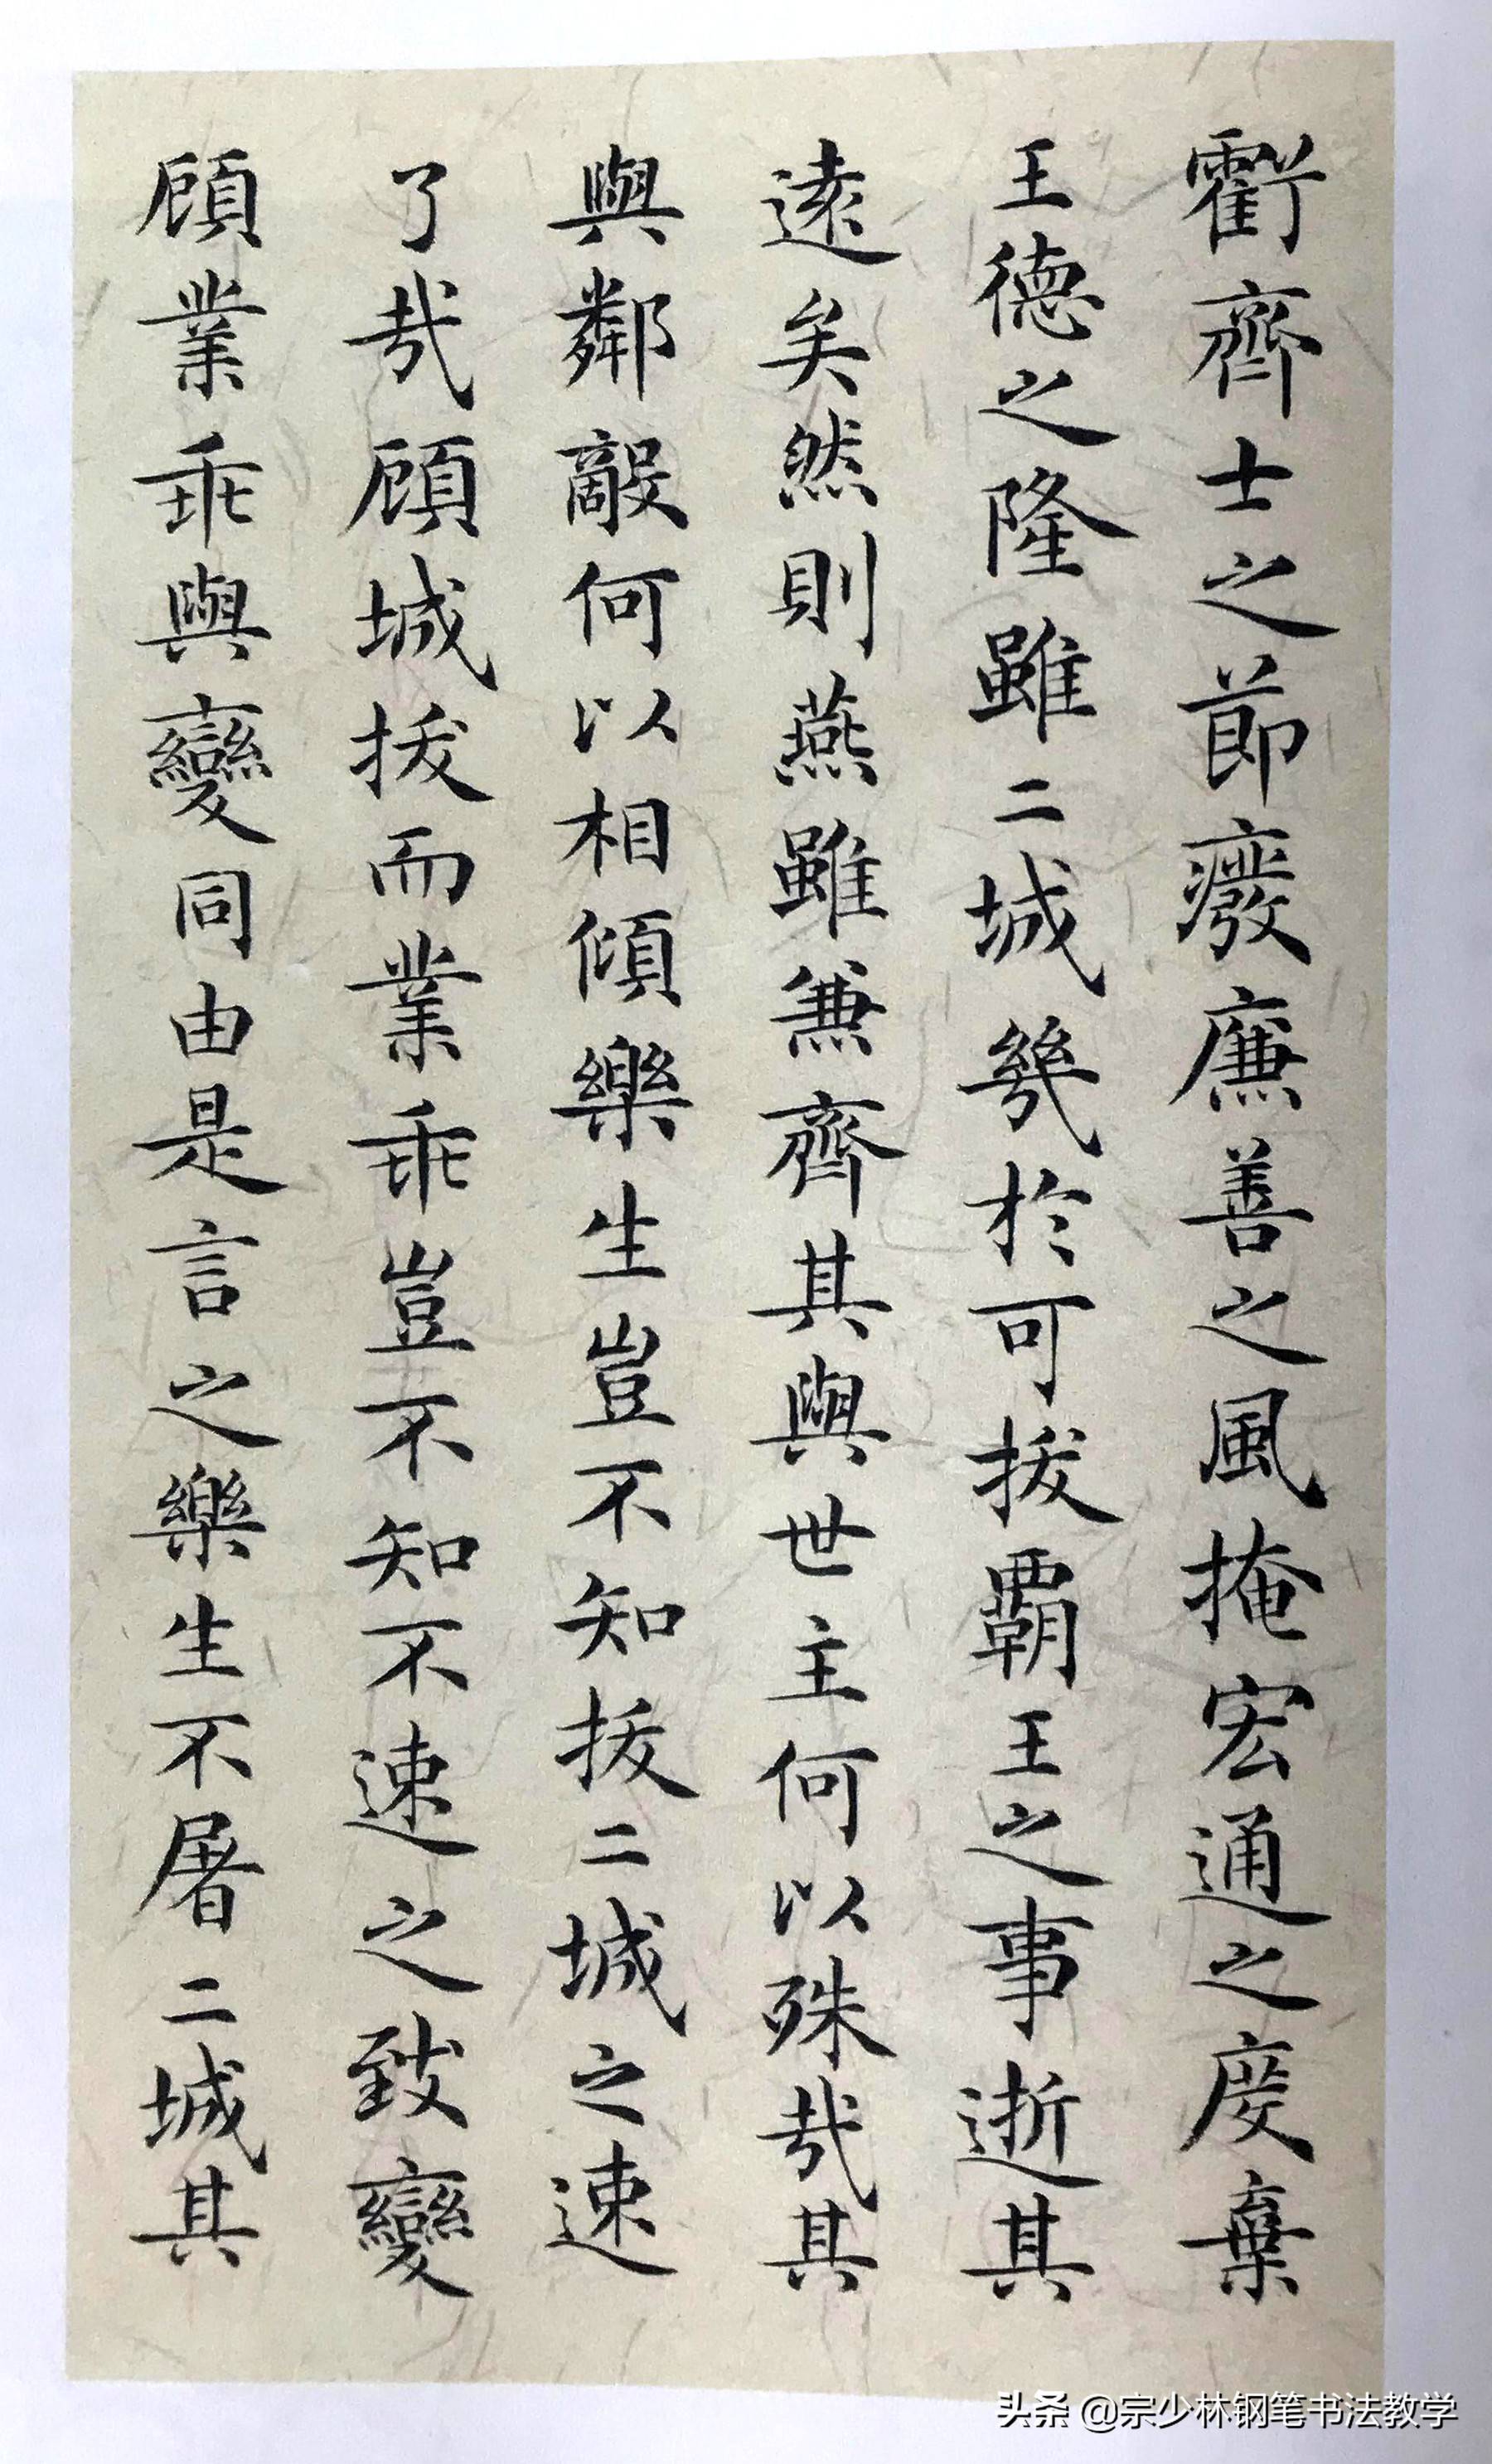 虧齊士之節廢廉善之風掩宏通之度棄
王德之隆雖二城幾於可拔霸王之事逝其
遠矣然則燕雖兼齊其與世主何以殊哉其
與鄰敵何以相傾樂生豈不知拔二城之速
了哉顧城拔而業乖豈不知不速之致變
顧業乖與變同由是言之樂生不屠二城其
头条 @宗少林钢笔书法教学